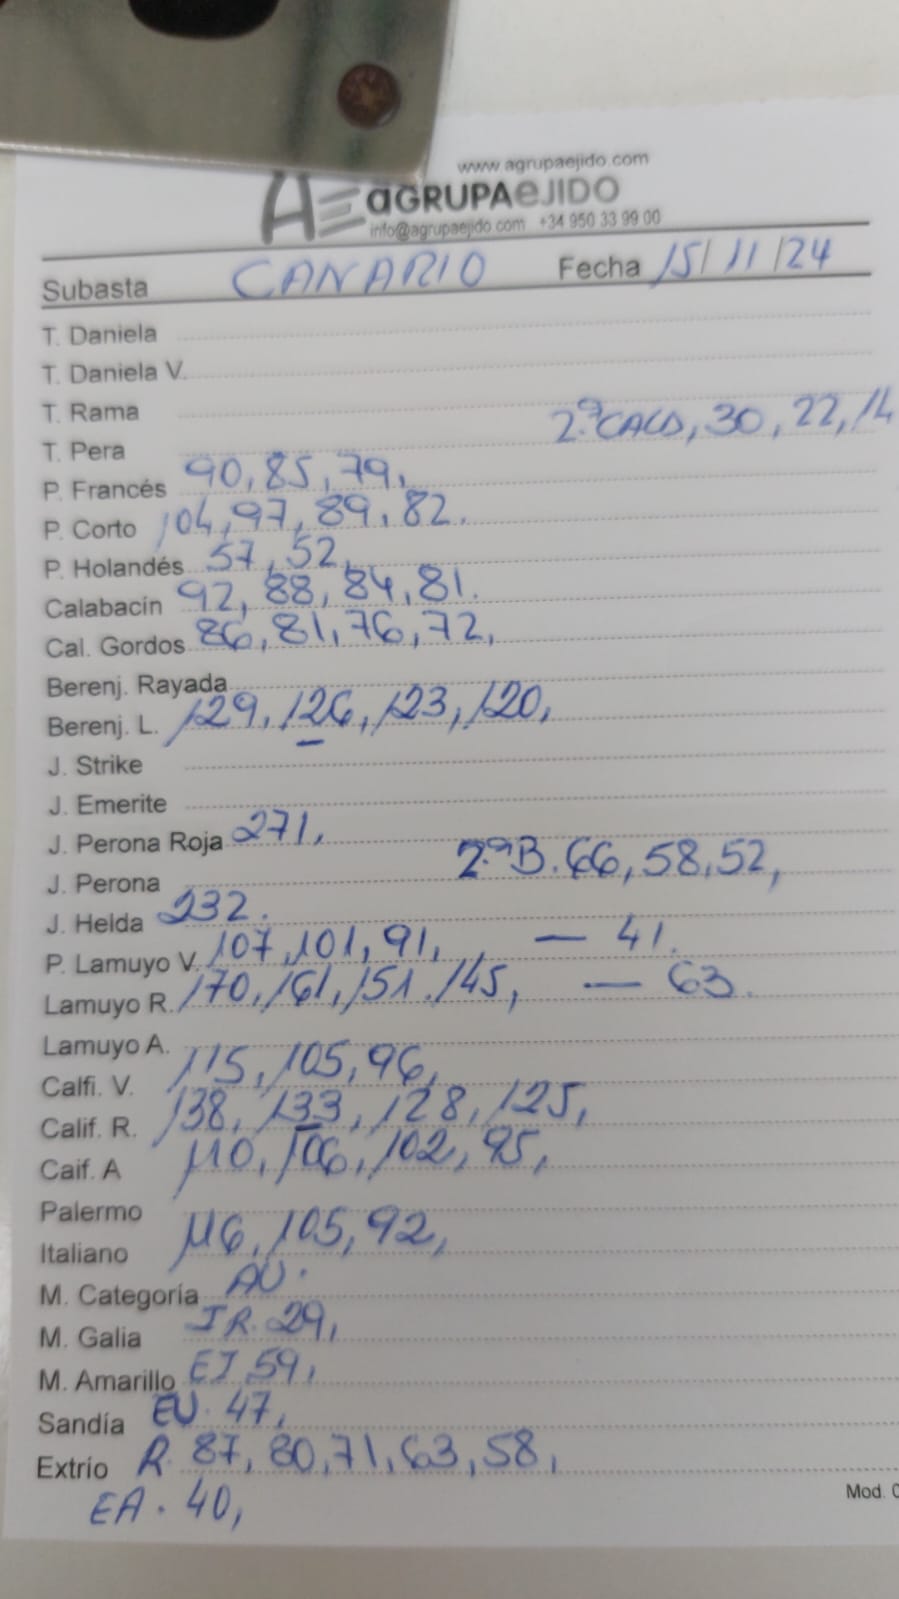 www.agrupaejido.com
AE aGRUPAeJIDO
info@agrupaejido.com +34 950 33 99 00
Subasta CANARIO Fecha 15/11/24
T. Daniela
T. Daniela V.
T. Rama
2.ª CALD, 30, 22, 14
T. Pera
P. Francés 90, 85, 79,
P. Corto 104, 97, 89, 82.
P. Holandés 57, 52,
Calabacín 92, 88, 84, 81.
Cal. Gordos 86, 81, 76, 72,
Berenj. Rayada
Berenj. L. 129, 126, 123, 120,
J. Strike
J. Emerite
J. Perona Roja 271,
J. Perona 2.ª B. 66, 58, 52,
J. Helda 232.
P. Lamuyo V. 107, 101, 91, — 41.
Lamuyo R. 170, 161, 151, 145, — 63.
Lamuyo A.
Calfi. V. 115, 105, 96,
Calif. R. 138, 133, 128, 125,
Caif. A 110, 106, 102, 95,
Palermo
Italiano 116, 105, 92,
M. Categoría AU.
M. Galia IR. 29,
M. Amarillo EI 59,
Sandía EU. 47,
Extrío R. 87, 80, 71, 63, 58,
EA. 40,
Mod.